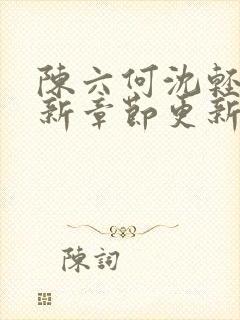 陳六何沈輕
新章節更新
陳詞